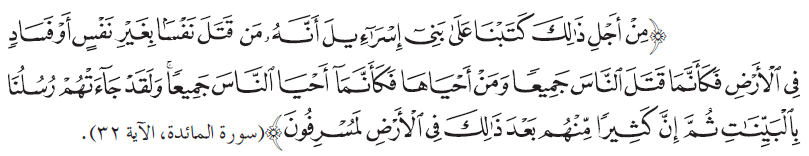 ﴿مِنْ أَجْلِ ذَٰلِكَ كَتَبْنَا عَلَىٰ بَنِىٓ إِسْرَٰٓءِيلَ أَنَّهُۥ مَن قَتَلَ نَفْسًۢا بِغَيْرِ نَفْسٍ أَوْ فَسَادٍ
فِى ٱلْأَرْضِ فَكَأَنَّمَا قَتَلَ ٱلنَّاسَ جَمِيعًا وَمَنْ أَحْيَاهَا فَكَأَنَّمَآ أَحْيَا ٱلنَّاسَ جَمِيعًا ۚ وَلَقَدْ جَآءَتْهُمْ رُسُلُنَا
بِٱلْبَيِّنَٰتِ ثُمَّ إِنَّ كَثِيرًا مِّنْهُم بَعْدَ ذَٰلِكَ فِى ٱلْأَرْضِ لَمُسْرِفُونَ﴾ (سورة المائدة، الآية ٣٢).